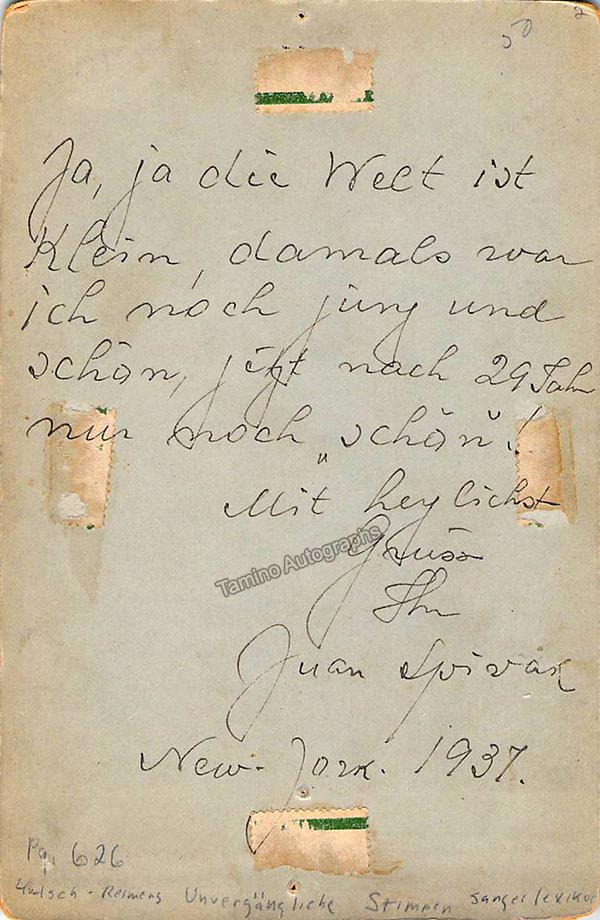 50
2
Ja, ja die Welt ist
Klein, damals war
ich noch jung und
schön, jetzt nach 29 Jahr
nur noch „schön"!
Mit herzlichst
Gruss
Ihr
Juan Spivak
New-Jork. 1937.
Tamino Autographs
Pg. 626
Kutsch-Riemens Unvergängliche Stimmen Sangerlexikon